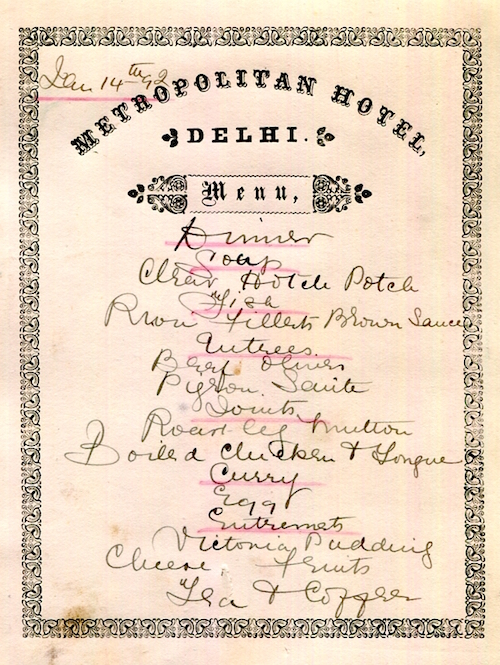 Jan 14th 92
METROPOLITAN HOTEL,
DELHI.
Menu,
Dinner
Soup
Clear Hotch Potch
Fish
Fillets Brown Sauce
Entrees.
Beef Olives
Pigeon Saute
Joints
Roast leg mutton
Boiled Chicken & Tongue
Curry
Egg
Entremets
Victoria Pudding
Cheese, Fruits
Tea & Coffee